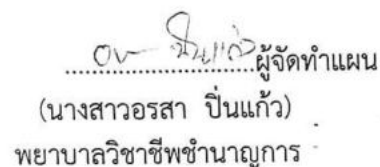 ผู้จัดทำแผน
(นางสาวอรสา ปิ่นแก้ว)
พยาบาลวิชาชีพชำนาญการ